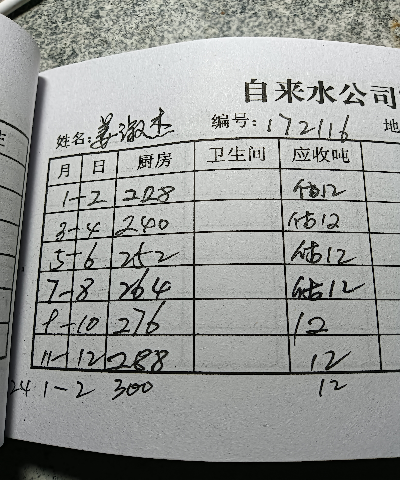 自来水公司
姓名:姜淑杰 编号:172116 地
月 日 厨房 卫生间 应收吨
1-2 228 估12
3-4 240 估12
5-6 252 估12
7-8 264 估12
9-10 276 12
11-12 288 12
24 1-2 300 12